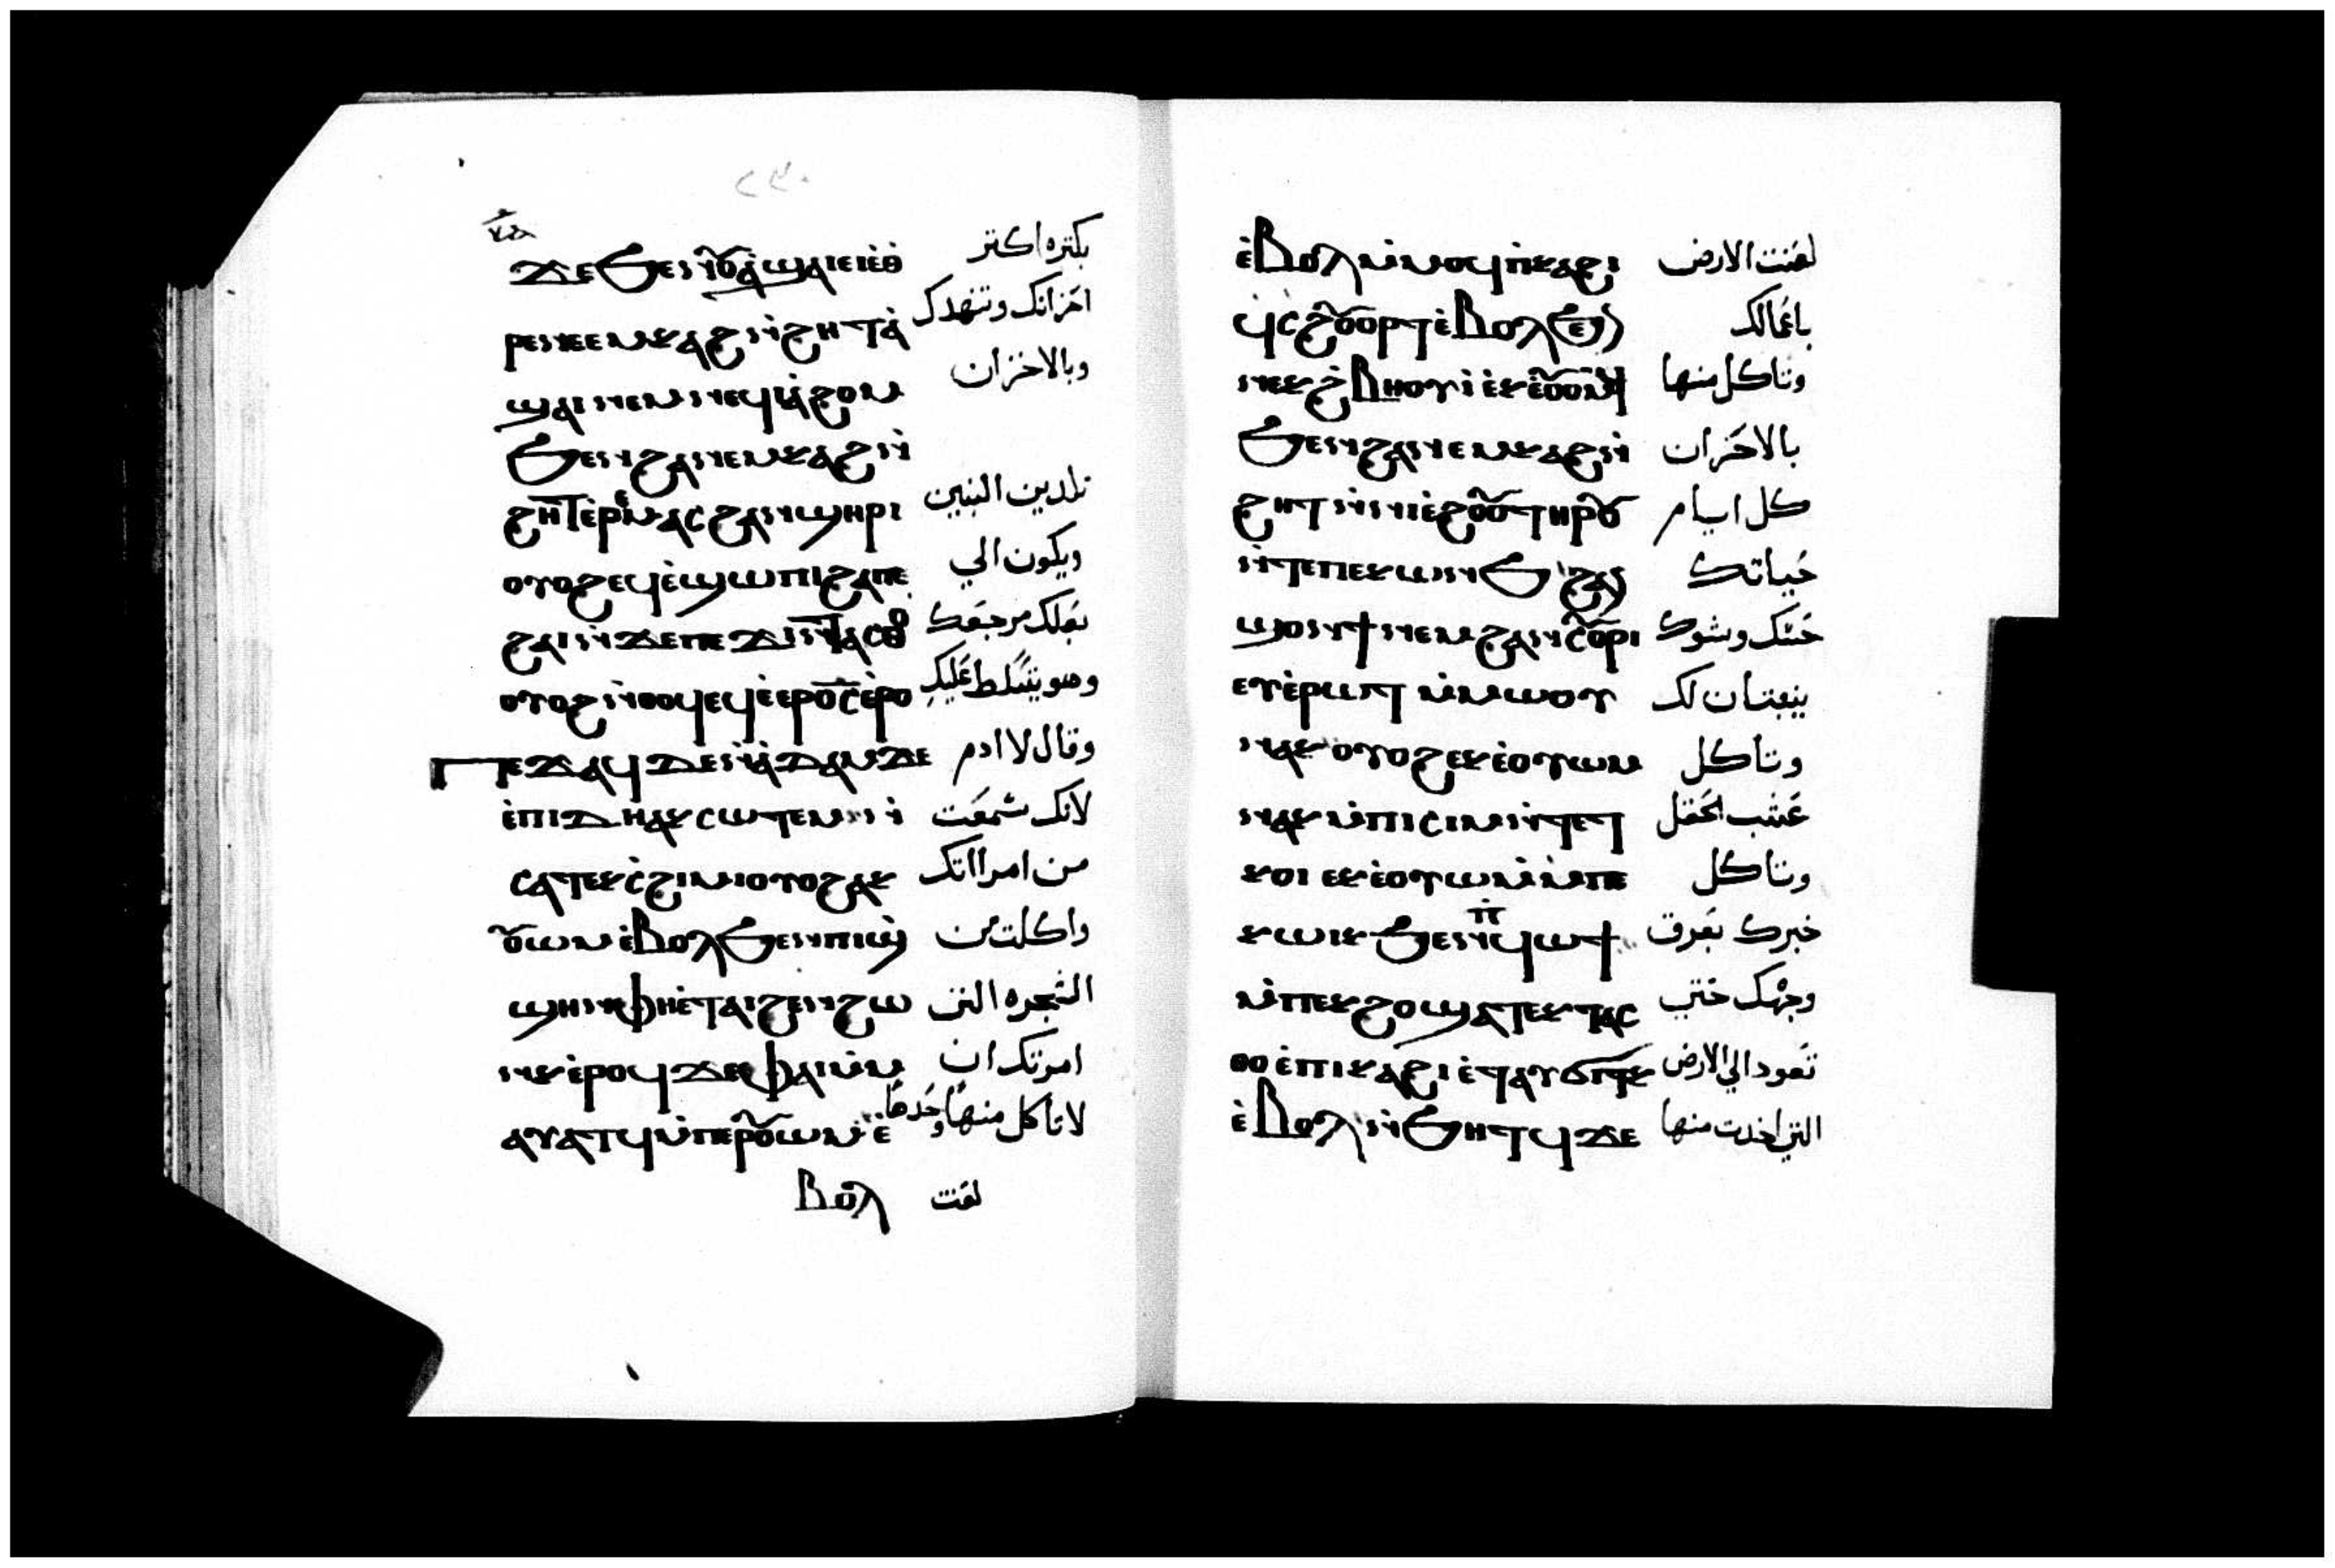 ⲇⲉ ϧⲉⲛⲟⲩⲁ̀ϣⲁⲓ ⲉⲓⲉ̀ⲑ بكتره اكتر
ⲣⲉⲛⲉⲉⲙⲕⲁϩⲛ̀ϩⲏⲧ ⲁ̀ احزانك وتنهدك
ϣⲁⲓ ⲛⲉⲙ ⲛⲉϥⲁ̀ϩⲟⲙ وبالاخزان
ϧⲉⲛϩⲁⲛⲉⲙⲕⲁϩⲛ̀
ϩⲏⲧ ⲉ̀ⲣⲉⲙⲁⲥ ϩⲁⲛϣⲏⲣⲓ تلدين البنين
ⲟⲩⲟϩ ⲉϥⲉ̀ϣⲱⲡⲓ ϩⲁⲡⲉ ويكون الي
ϩⲁⲓ ⲛ̀ϫⲉ ⲡⲉϫⲓⲛⲧⲁⲥⲑⲟ بعلك مرجعك
ⲟⲩⲟϩ ⲛ̀ⲑⲟϥ ⲉϥⲉ̀ⲉⲣⲟ̅ⲥ̅ ⲉ̀ⲣⲟ وهو يتسلط عليك
ⲡⲉϫⲁϥ ⲇⲉ ⲛ̀ⲁ̀ⲇⲁⲙ ϫⲉ وقال لادم
ⲉ̀ⲡⲓⲇⲏ ⲁⲕⲥⲱⲧⲉⲙ ⲛ̀ لانك سمعت
ⲥⲁ ⲧⲉⲕⲥ̀ϩⲓⲙⲓ ⲟⲩⲟϩ ⲁⲕ من امرااتك
ⲟⲩⲱⲙ ⲉ̀ⲃⲟⲗϧⲉⲛ ⲡⲓϣ̀ واكلت من
ϣⲏⲛ ⲫⲏⲉ̀ⲧⲁⲓϩⲉⲛϩⲱ الشجره التي
ⲛⲕ ⲉ̀ⲣⲟϥ ϫⲉ ⲫⲁⲓ ⲙ̀ⲙ امرتك ان
ⲁⲩⲁⲧϥ ⲙ̀ⲡⲉⲣⲟⲩⲱⲙ ⲉ̀ لاتاكل منها وحدها
ⲃⲟⲗ لعنت
ⲉ̀ⲃⲟⲗ ⲙ̀ⲙⲟϥ ⲡ̀ⲕⲁϩⲓ لعنت الارض
ϥ̀ⲥ̀ϩⲟⲩⲟⲣⲧ ⲉ̀ⲃⲟⲗϧⲉⲛ باعمالك
ⲛⲉⲕϩ̀ⲃⲏⲟⲩⲓ̀ ⲉⲕⲉ̀ⲟⲩⲟⲙϥ وتاكل منها
ϧⲉⲛϩⲁⲛⲉⲙⲕⲁϩⲛ̀ بالاحزان
ϩⲏⲧ ⲛ̀ⲛⲓⲉ̀ϩⲟⲟⲩ ⲧⲏⲣⲟⲩ كل ايام
ⲛ̀ⲧⲉ ⲡⲉⲕⲱⲛϧ ϩⲁⲛ حياتك
ϣⲟⲛϯ ⲛⲉⲙ ϩⲁⲛⲥⲟⲩⲣⲓ حسك وشوك
ⲉⲩⲉ̀ⲣⲱⲧ ⲙ̀ⲙⲱⲟⲩ ينبتان لك
ⲛⲁⲕ ⲟⲩⲟϩ ⲉⲕⲉ̀ⲟⲩⲱⲙ وتاكل
ⲛⲁⲕ ⲙ̀ⲡⲓⲥⲓⲙ ⲛ̀ⲧⲉⲧ عشب الحقل
ⲕⲟⲓ ⲉⲕⲉ̀ⲟⲩⲱⲙ ⲙ̀ⲡⲉ وتاكل
ⲕⲱⲓⲕ ϧⲉⲛ ⲡ̀ϥⲱϯ خبزك بعرق
ⲙ̀ⲡⲉⲕϩⲟ ϣⲁⲧⲉⲕⲧⲁⲥ وجهك حتي
ⲑⲟ ⲉ̀ⲡⲓⲕⲁϩⲓ ⲉ̀ⲧⲁⲩⲟⲗⲕ تعود الي الارض
ⲉ̀ⲃⲟⲗⲛ̀ϧⲏⲧϥ ϫⲉ التي اخدت منها